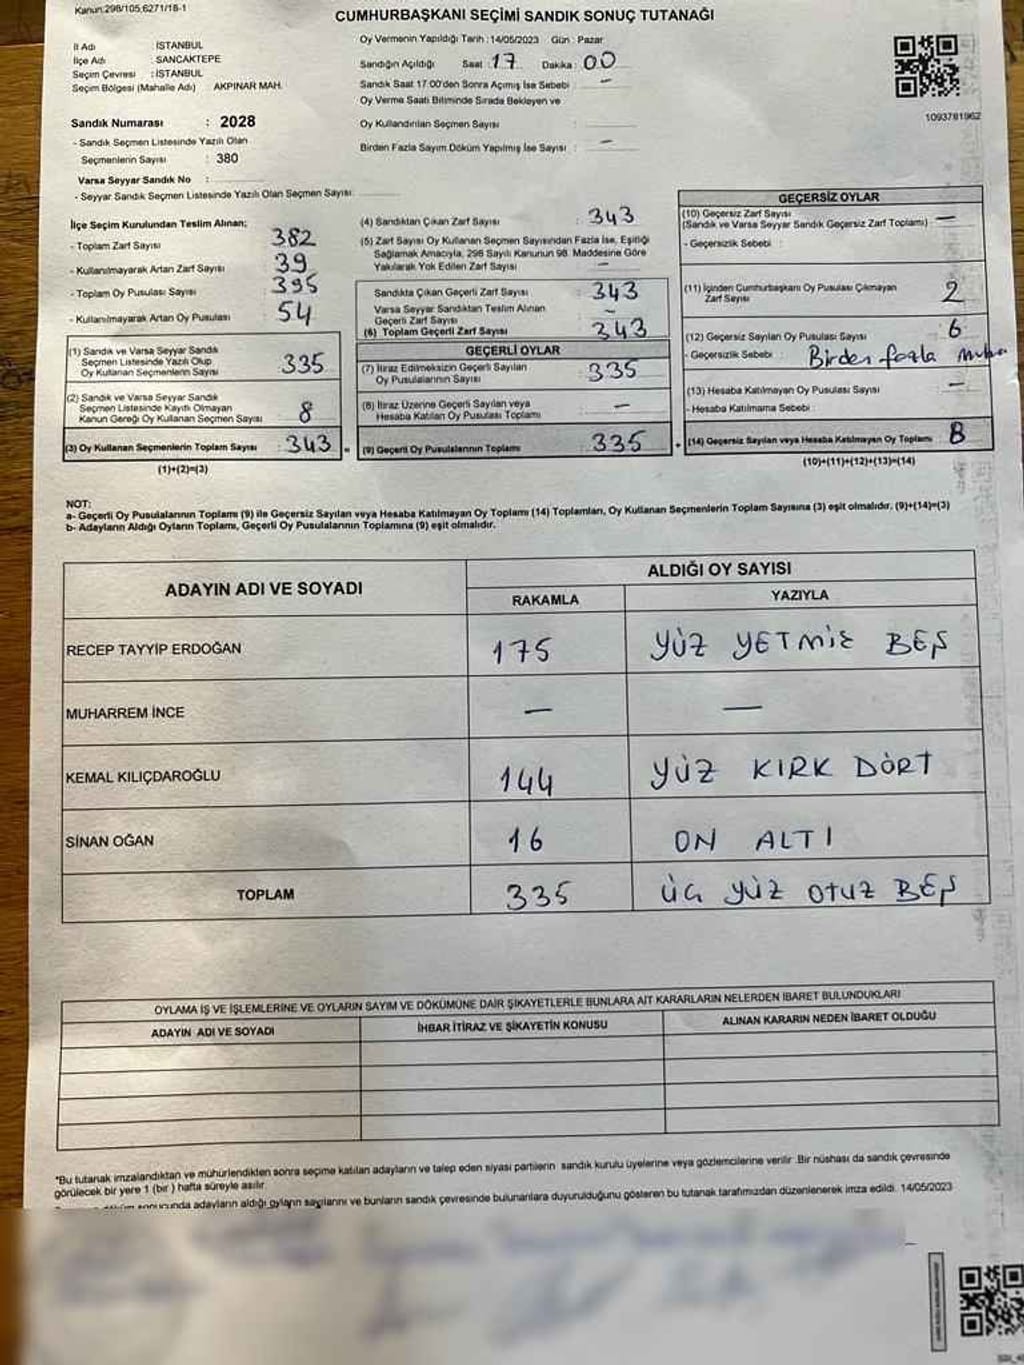 Kanun:298/105,6271/18-1
CUMHURBAŞKANI SEÇİMİ SANDIK SONUÇ TUTANAĞI
İl Adı : İSTANBUL
İlçe Adı : SANCAKTEPE
Seçim Çevresi : İSTANBUL
Seçim Bölgesi (Mahalle Adı) AKPINAR MAH.
Sandık Numarası : 2028
- Sandık Seçmen Listesinde Yazılı Olan
Seçmenlerin Sayısı : 380
Varsa Seyyar Sandık No :
- Seyyar Sandık Seçmen Listesinde Yazılı Olan Seçmen Sayısı:
Oy Vermenin Yapıldığı Tarih : 14/05/2023 Gün : Pazar
Sandığın Açıldığı Saat : 17 Dakika : 00
Sandık Saat 17:00'den Sonra Açımış İse Sebebi : —
Oy Verme Saati Bitiminde Sırada Bekleyen ve
Oy Kullandırılan Seçmen Sayısı :
Birden Fazla Sayım Döküm Yapılmış İse Sayısı : —
1093781962
İlçe Seçim Kurulundan Teslim Alınan;
- Toplam Zarf Sayısı : 382
- Kullanılmayarak Artan Zarf Sayısı : 39
- Toplam Oy Pusulası Sayısı : 395
- Kullanılmayarak Artan Oy Pusulası : 54
(1) Sandık ve Varsa Seyyar Sandık
Seçmen Listesinde Yazılı Olup
Oy Kullanan Seçmenlerin Sayısı : 335
(2) Sandık ve Varsa Seyyar Sandık
Seçmen Listesinde Kayıtlı Olmayan
Kanun Gereği Oy Kullanan Seçmen Sayısı : 8
(3) Oy Kullanan Seçmenlerin Toplam Sayısı : 343 =
(1)+(2)=(3)
(4) Sandıktan Çıkan Zarf Sayısı : 343
(5) Zarf Sayısı Oy Kullanan Seçmen Sayısından Fazla İse, Eşitliği
Sağlamak Amacıyla, 298 Sayılı Kanunun 98. Maddesine Göre
Yakılarak Yok Edilen Zarf Sayısı : —
Sandıkta Çıkan Geçerli Zarf Sayısı : 343
Varsa Seyyar Sandıktan Teslim Alınan
Geçerli Zarf Sayısı : —
(6) Toplam Geçerli Zarf Sayısı : 343
GEÇERLİ OYLAR
(7) İtiraz Edilmeksizin Geçerli Sayılan
Oy Pusulalarının Sayısı : 335
(8) İtiraz Üzerine Geçerli Sayılan veya
Hesaba Katılan Oy Pusulası Toplamı : —
(9) Geçerli Oy Pusulalarının Toplamı : 335 +
GEÇERSİZ OYLAR
(10) Geçersiz Zarf Sayısı
(Sandık ve Varsa Seyyar Sandık Geçersiz Zarf Toplamı) : —
- Geçersizlik Sebebi :
(11) İçinden Cumhurbaşkanı Oy Pusulası Çıkmayan
Zarf Sayısı : 2
(12) Geçersiz Sayılan Oy Pusulası Sayısı : 6
- Geçersizlik Sebebi : Birden fazla
(13) Hesaba Katılmayan Oy Pusulası Sayısı : —
- Hesaba Katılmama Sebebi :
(14) Geçersiz Sayılan veya Hesaba Katılmayan Oy Toplamı : 8
(10)+(11)+(12)+(13)=(14)
NOT:
a- Geçerli Oy Pusulalarının Toplamı (9) ile Geçersiz Sayılan veya Hesaba Katılmayan Oy Toplamı (14) Toplamları, Oy Kullanan Seçmenlerin Toplam Sayısına (3) eşit olmalıdır. (9)+(14)=(3)
b- Adayların Aldığı Oyların Toplamı, Geçerli Oy Pusulalarının Toplamına (9) eşit olmalıdır.
ADAYIN ADI VE SOYADI
ALDIĞI OY SAYISI
RAKAMLA YAZIYLA
RECEP TAYYİP ERDOĞAN 175 YÜZ YETMİŞ BEŞ
MUHARREM İNCE — —
KEMAL KILIÇDAROĞLU 144 YÜZ KIRK DÖRT
SİNAN OĞAN 16 ON ALTI
TOPLAM 335 ÜÇ YÜZ OTUZ BEŞ
OYLAMA İŞ VE İŞLEMLERİNE VE OYLARIN SAYIM VE DÖKÜMÜNE DAİR ŞİKAYETLERLE BUNLARA AİT KARARLARIN NELERDEN İBARET BULUNDUKLARI
ADAYIN ADI VE SOYADI İHBAR İTİRAZ VE ŞİKAYETİN KONUSU ALINAN KARARIN NEDEN İBARET OLDUĞU
*Bu tutanak imzalandıktan ve mühürlendikten sonra seçime katılan adayların ve talep eden siyasi partilerin sandık kurulu üyelerine veya gözlemcilerine verilir. Bir nüshası da sandık çevresinde
görülecek bir yere 1 (bir) hafta süreyle asılır.
sonucunda adayların aldığı oyların sayılarını ve bunların sandık çevresinde bulunanlara duyurulduğunu gösteren bu tutanak tarafımızdan düzenlenerek imza edildi. 14/05/2023